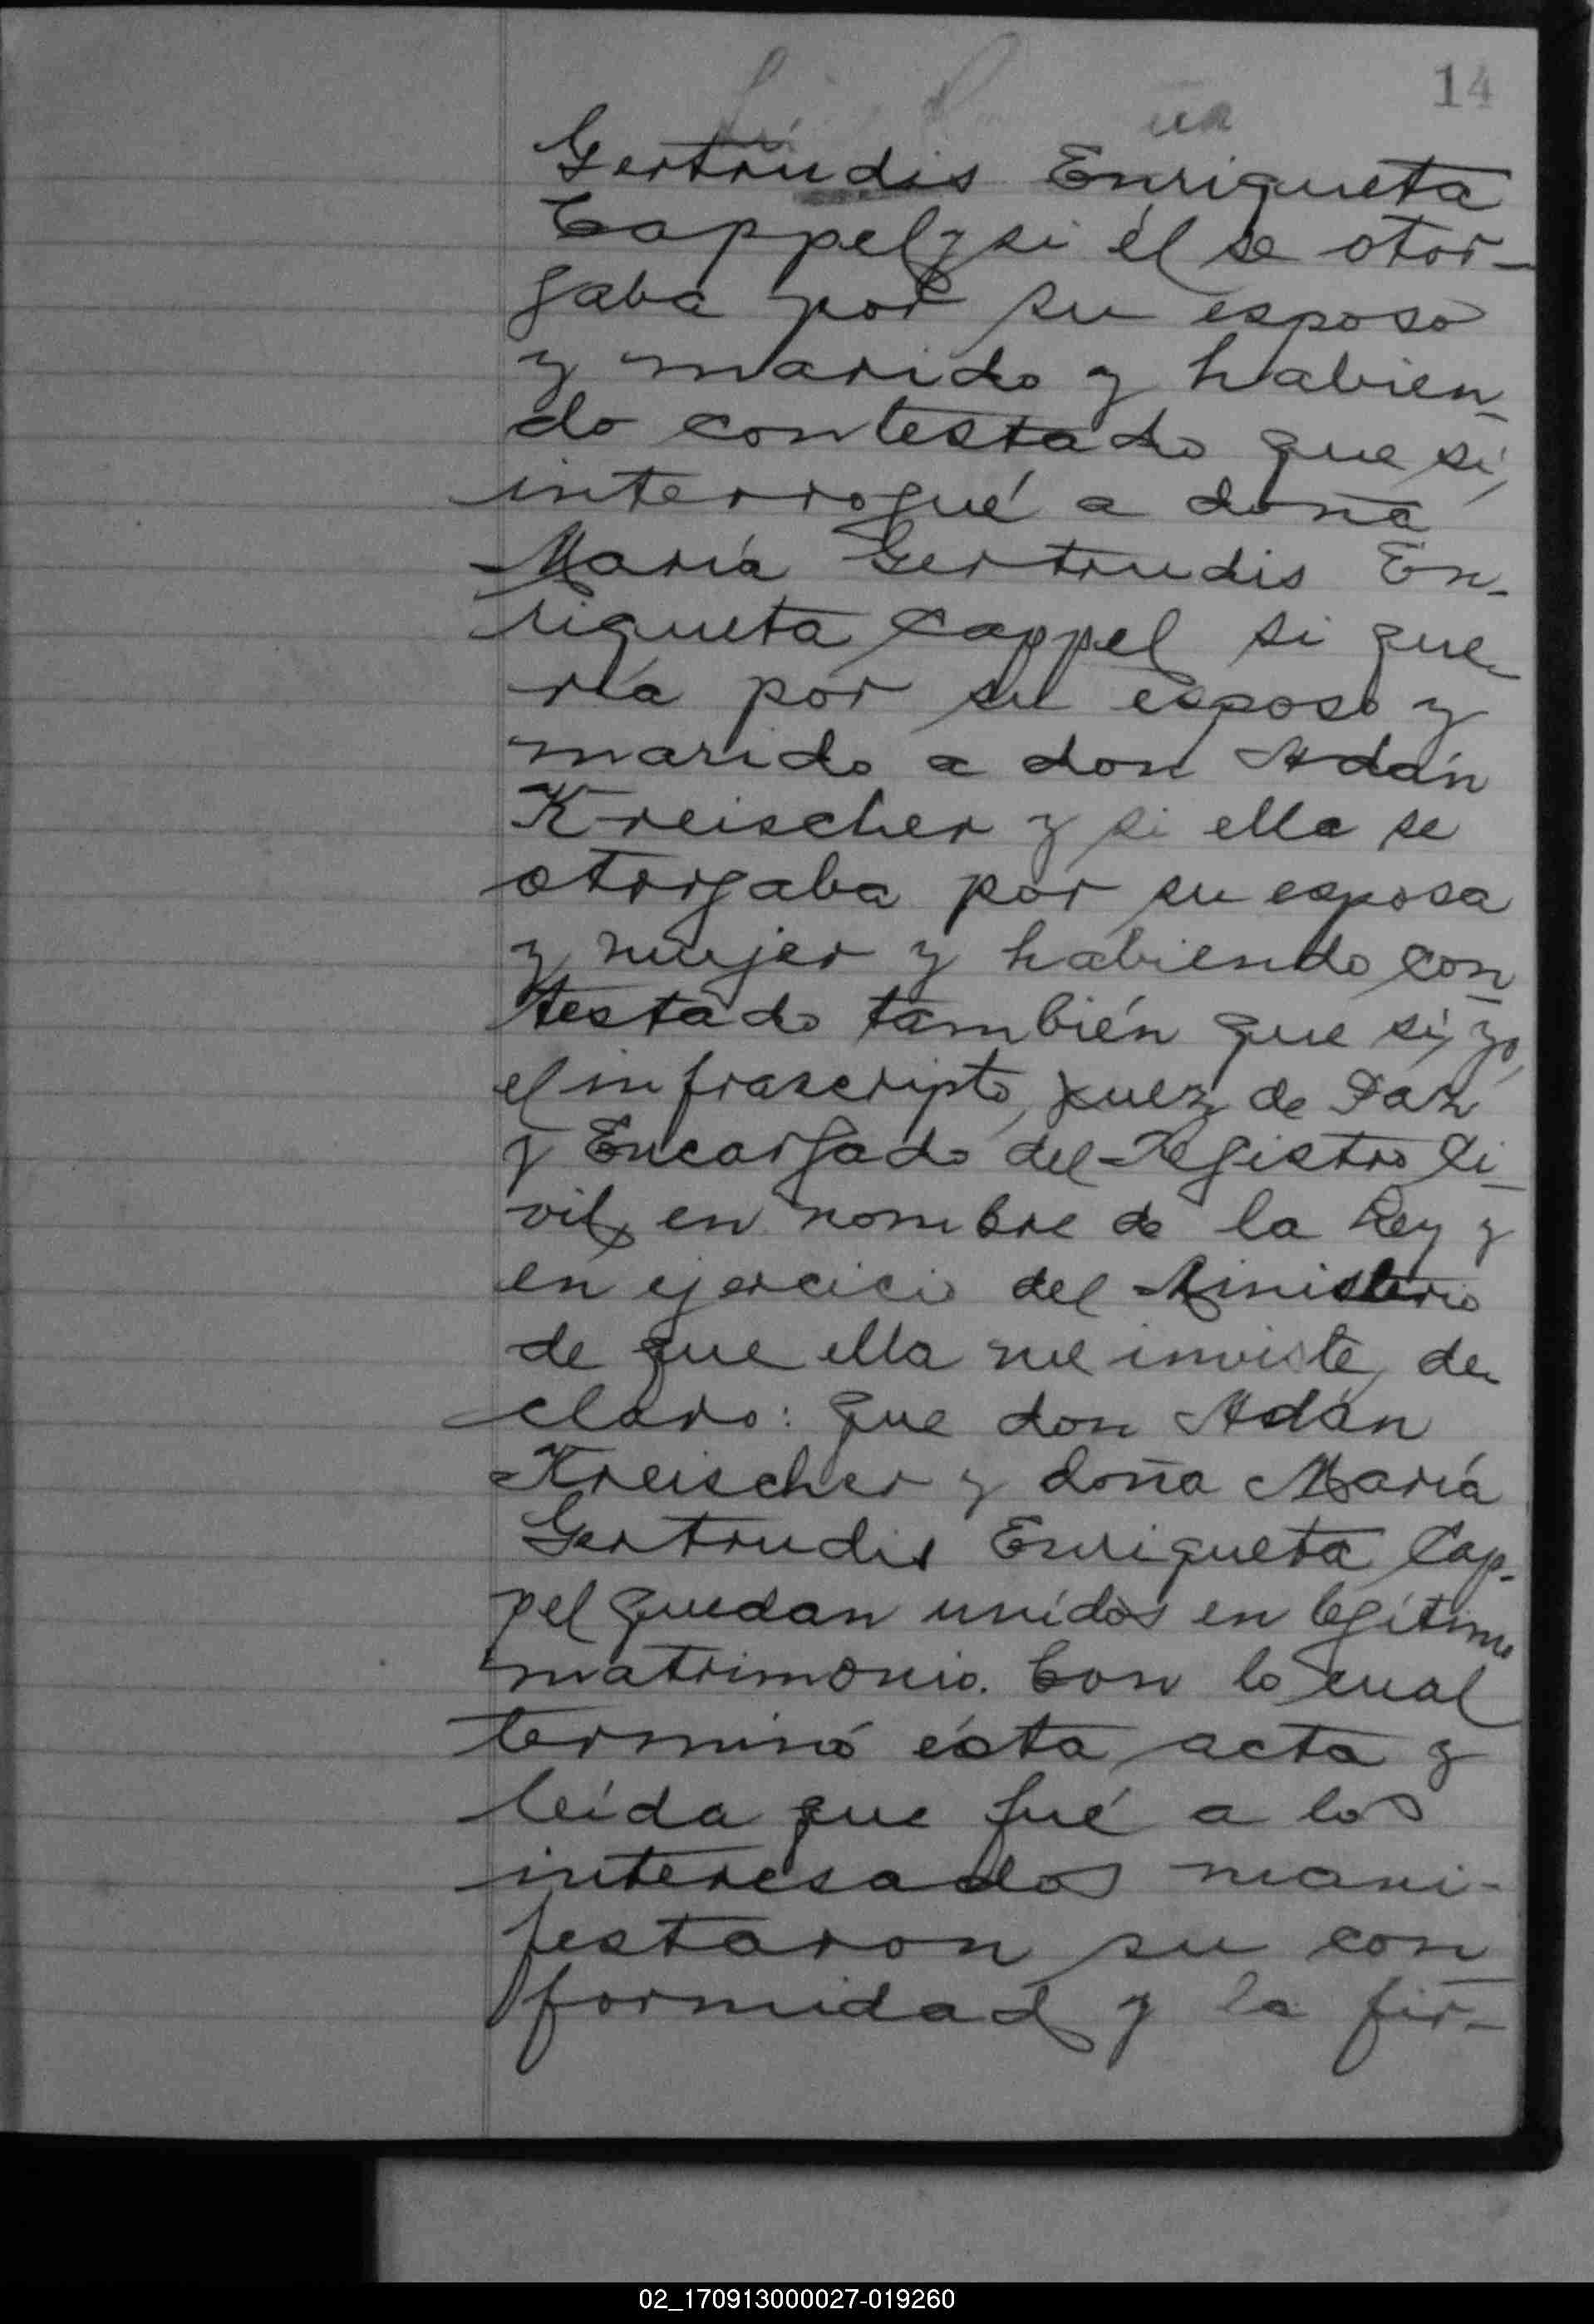 14
Gertrudis Enriqueta
Cappel y si él se otor-
gaba por su esposo
y marido y habien-
do contestado que sí,
interrogué a doña
María Gertrudis En-
riqueta Cappel si que-
ría por su esposo y
marido a don Adán
Kreischer y si ella se
otorgaba por su esposa
y mujer y habiendo con-
testado también que sí, yo,
el infrascripto, Juez de Paz
y Encargado del Registro Ci-
vil, en nombre de la Ley y
en ejercicio del Ministerio
de que ella me inviste, de-
claro: que don Adán
Kreischer y doña María
Gertrudis Enriqueta Cap-
pel quedan unidos en legítimo
matrimonio. Con lo cual
terminó ésta acta y
leída que fué a los
interesados mani-
festaron su con-
formidad y la fir-
02_170913000027-019260